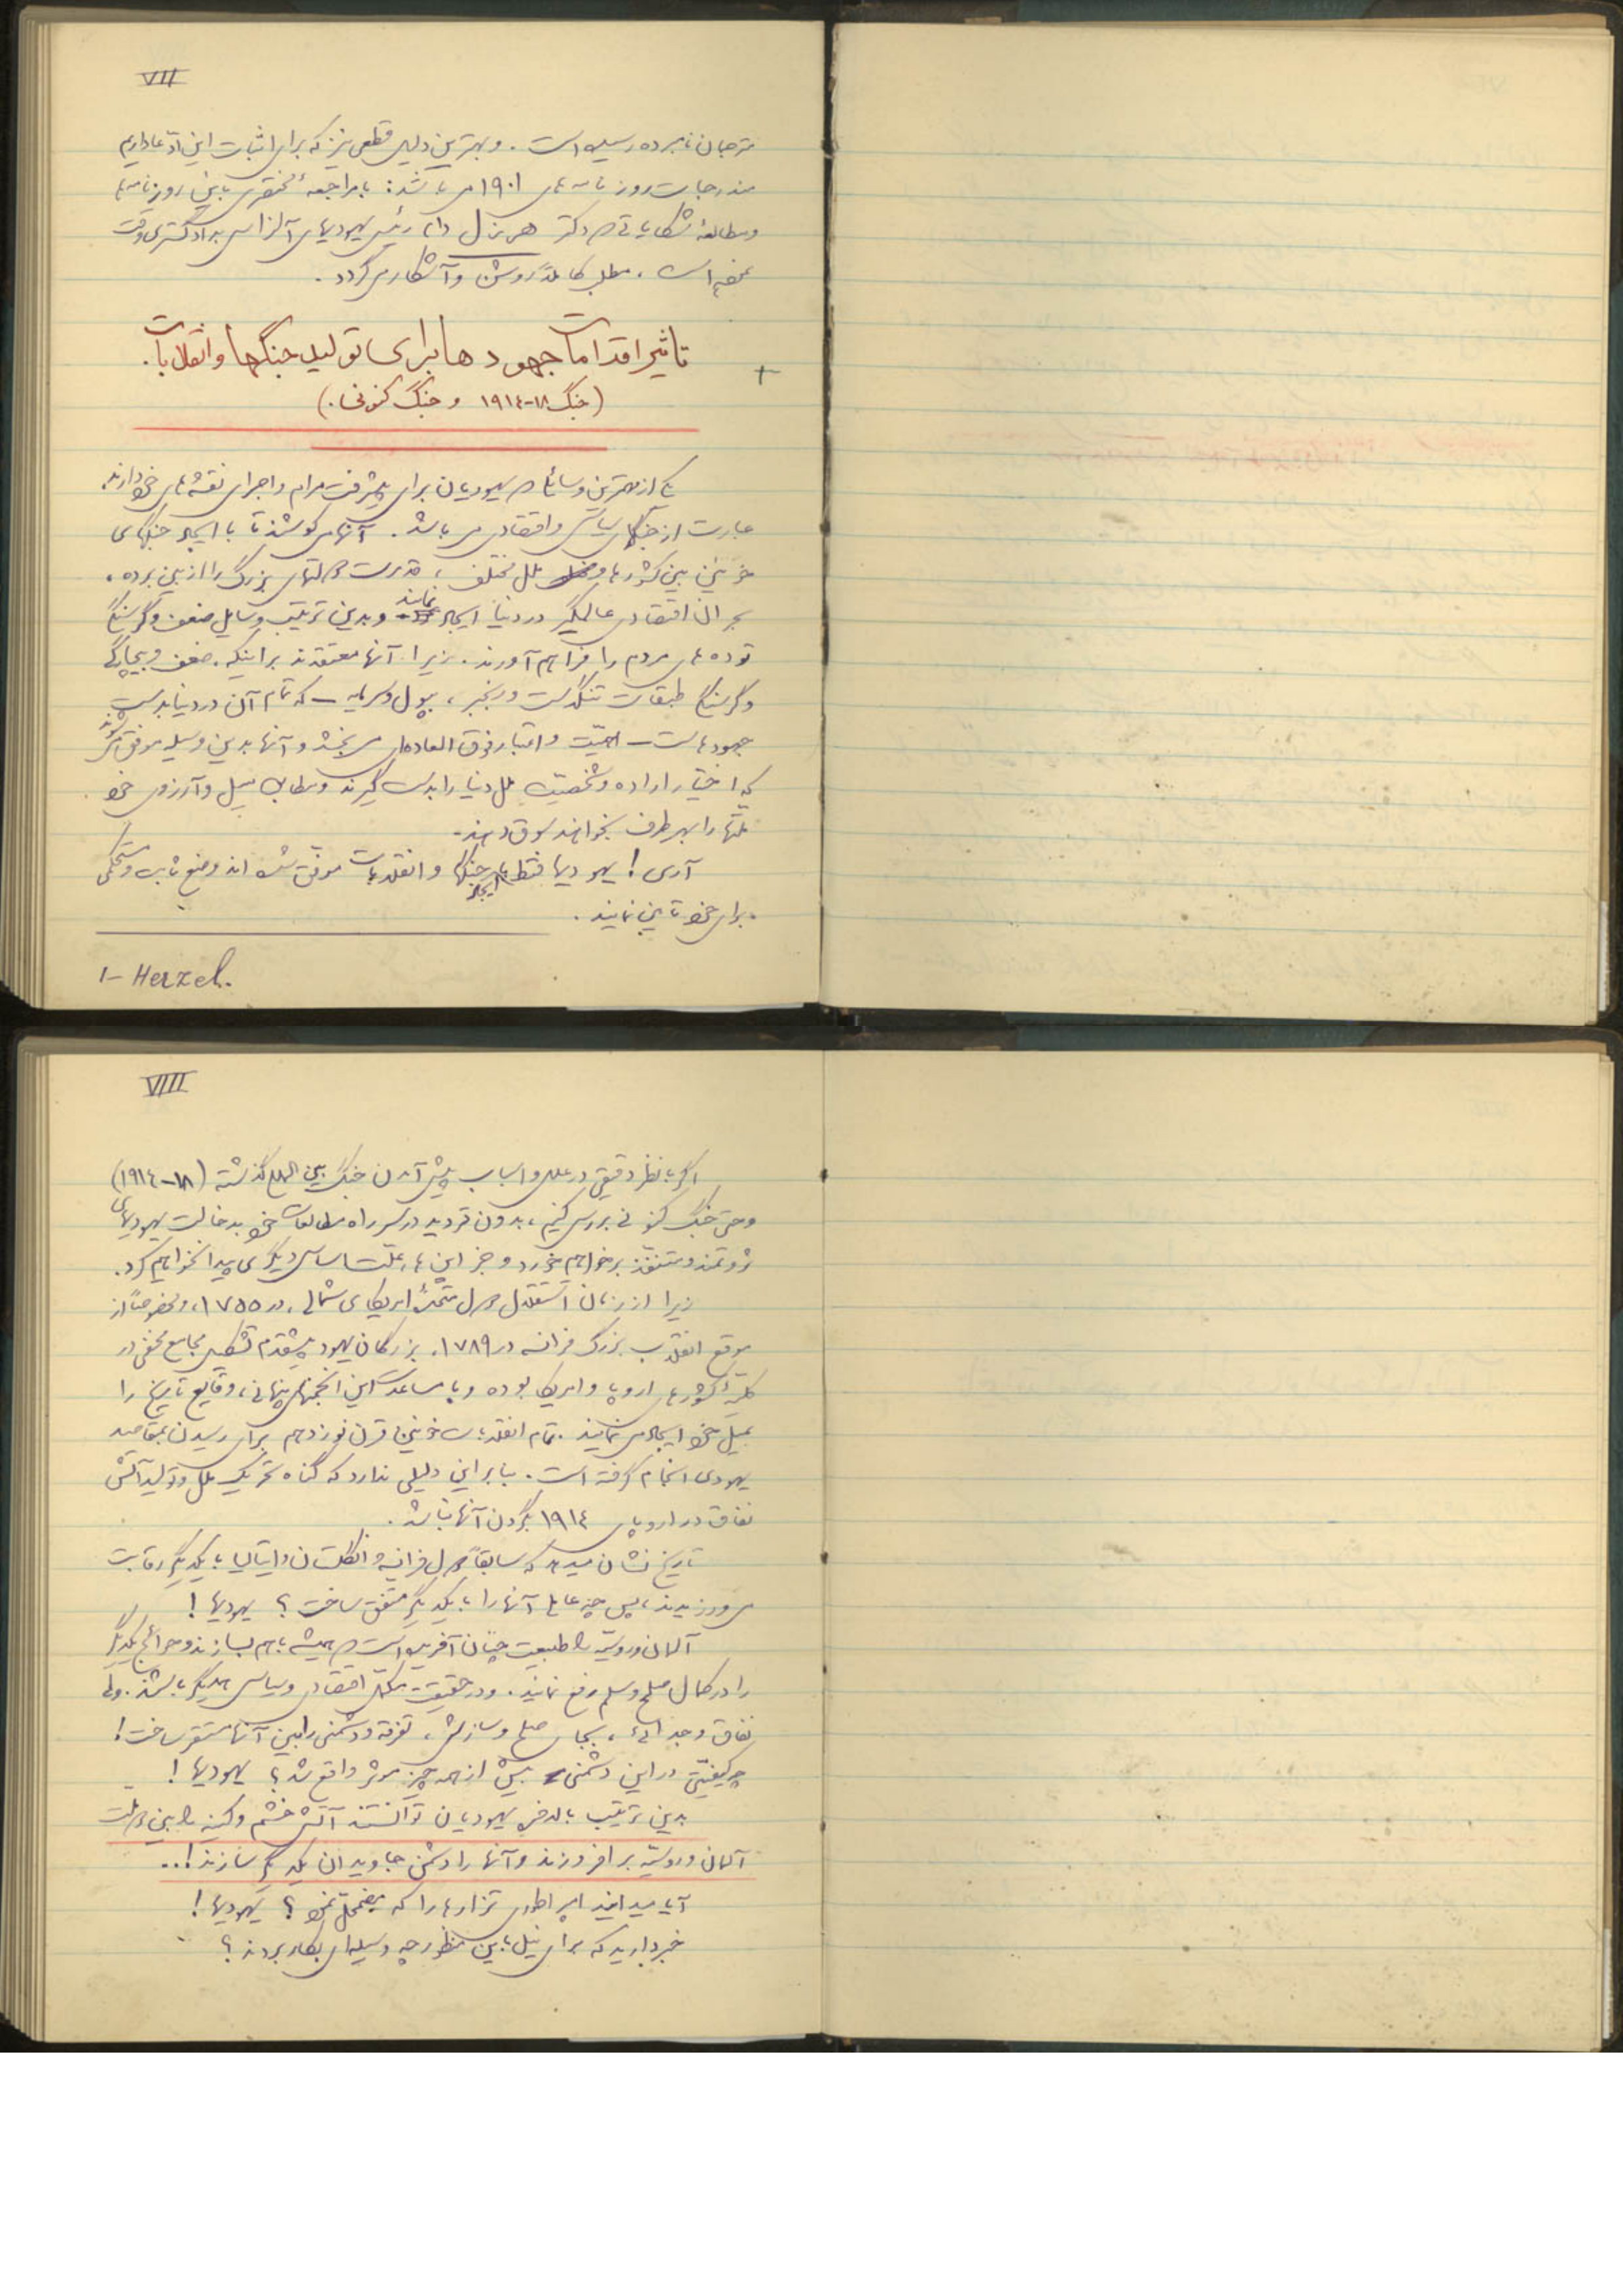 VII
مترجمان نامبرده رسیده است. و بهترین دلیل قطعی نیز که برای اثبات این ادعا داریم
مندرجات روزنامه‌های ۱۹۰۱ می‌باشد: با مراجعهٔ مختصری باین روزنامه‌ها
و مطالعهٔ شکایاتی که دکتر هرتزل رئیس یهودیهای آلزاس بدادگستری وقت
نموده است، مطلب کاملاً روشن و آشکار می‌گردد.
تاثیر اقدامات جهودها برای تولید جنگها و انقلابات.
(جنگ ۱۸-۱۹۱٤ و جنگ کنونی.)
یکی از بهترین وسائلی که یهودیان برای پیشرفت مرام و اجرای نقشه‌های خود دارند
عبارت از جنگهای سیاسی و اقتصادی می‌باشد. آنها می‌کوشند تا با ایجاد جنگهای
خونین بین کشورها و ملل مختلف، قدرت دولتهای بزرگ را از بین برده،
بحران اقتصادی عالمگیر در دنیا ایجاد نمایند و بدین ترتیب وسایل ضعف و گرسنگی
توده‌های مردم را فراهم آورند. زیرا آنها معتقدند براینکه، ضعف و بیچارگی
و گرسنگی طبقات تنگدست و رنجبر، بپول و سرمایه - که تمام آن در دنیا بدست
جهودهاست - اهمیّت و اعتبار فوق العاده‌ای می‌بخشد و آنها بدین وسیله موفق می‌شوند
که اختیار اراده و شخصیت ملل دنیا را بدست گیرند و مطابق میل و آرزوی خود
ملّتها را بهر طرف بخواهند سوق دهند.
آری! یهودیها فقط با ایجاد جنگها و انقلابات موفق شده‌اند وضع ثابت و محکمی
برای خود تأمین نمایند.
۱- Herzel.
VIIII
اگر با نظر دقیقی در علل و اسباب پیش آمدن جنگ بین الملل گذشته (۱۸-۱۹۱٤)
و حتی جنگ کنونی بررسی کنیم، بدون تردید در سر راه مطالعات خود بدخالت یهودیهای
ثروتمند و متنفذ برخواهیم خورد و جز اینها، علت اساسی دیگری پیدا نخواهیم کرد.
زیرا از زمان استقلال دول متحدهٔ امریکای شمالی، در ۱۷۵۵، و خصوصاً از
موقع انقلاب بزرگ فرانسه در ۱۷۸۹، بزرگان یهود پیشقدم تشکیل مجامع مخفی در
کلیهٔ کشورهای اروپا و امریکا بوده و با مساعدت این انجمنهای پنهانی، وقایع تاریخ را
بمیل خود ایجاد می‌نمایند. تمام انقلابات خونین قرن نوزدهم برای رسیدن بمقاصد
یهودی انجام گرفته است. بنابراین دلیلی ندارد که گناه تحریک ملل و تولید آتش
نفاق در اروپای ۱۹۱٤ بگردن آنها نباشد.
تاریخ نشان میدهد که سابقاً دول فرانسه و انگلستان و ایتالیا با یکدیگر رقابت
می‌ورزیدند، پس چه عاملی آنها را با یکدیگر متفق ساخت؟ یهودیها!
آلمان و روسیه را طبیعت چنان آفریده است که همیشه باهم بسازند و حوائج یکدیگر
را در کمال صلح و سلم رفع نمایند. و در حقیقت مکمل اقتصادی و سیاسی همدیگر باشند. ولی
نفاق و جدائی، بجای صلح و سازش، تفرقه و دشمنی را بین آنها مستقر ساخت!
چه کیفیتی در این دشمنی بیش از همه چیز مؤثر واقع شد؟ یهودیها!
بدین ترتیب بالاخره یهودیان توانستند آتش خشم و کینه را بین دو ملت
آلمان و روسیه برافروزند و آنها را دشمن جاویدان یکدیگر سازند!..
آیا میدانید امپراطوری تزارها را که مضمحل نمود؟ یهودیها!
خبر دارید که برای نیل باین منظور چه وسیله‌ای بکار بردند؟